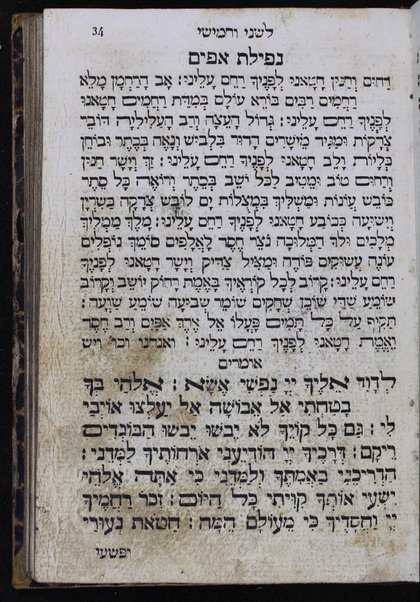 34 לשני ורמישי
נפילת אפים
רַחוּם וְחַנּוּן חָטָאנוּ לְפָנֶיךָ רַחֵם עָלֵינוּ: אָב הָרַחְמָן מָלֵא
רַחֲמִים רַבִּים בּוֹרֵא עוֹלָם בְּמִדַּת רַחֲמִים חָטָאנוּ
לְפָנֶיךָ רַחֵם עָלֵינוּ: גְּדוֹל הָעֵצָה וְרַב הָעֲלִילִיָּה דּוֹבֵר
צְדָקוֹת וּמַגִּיד מֵישָׁרִים הָדוּר בִּלְבוּשׁ וְנָאֶה בְּכֶתֶר וּבוֹחֵן
כְּלָיוֹת וָלֵב חָטָאנוּ לְפָנֶיךָ רַחֵם עָלֵינוּ: זַךְ וְיָשָׁר חַנּוּן
וְרַחוּם טוֹב וּמֵטִיב לַכֹּל יֹשֵׁב בַּסֵּתֶר וְרוֹאֶה כָּל סֵתֶר
כּוֹבֵשׁ עֲוֹנוֹת וּמַשְׁלִיךְ בִּמְצֻלוֹת יָם לוֹבֵשׁ צְדָקָה כַּשִּׁרְיָן
וִישׁוּעָה בְּכוֹבַע חָטָאנוּ לְפָנֶיךָ רַחֵם עָלֵינוּ: מֶלֶךְ מַמְלִיךְ
מְלָכִים וּלְךָ הַמְּלוּכָה נֹצֵר חֶסֶד לָאֲלָפִים סוֹמֵךְ נוֹפְלִים
עוֹנֶה עֲשׁוּקִים פּוֹדֶה וּמַצִּיל צַדִּיק וְיָשָׁר חָטָאנוּ לְפָנֶיךָ
רַחֵם עָלֵינוּ: קָרוֹב לְכָל קוֹרְאֶיךָ בֶּאֱמֶת רָחוֹק יוֹשֵׁב וְקָרוֹב
שׁוֹמֵעַ שַׁדַּי שׁוֹכֵן שְׁחָקִים שׁוֹמֵר שְׁבוּעָה שׁוֹמֵעַ שַׁוְעָה:
תַּקִּיף עַל כָּל תָּמִים פָּעֳלוֹ אֵל אֶרֶךְ אַפַּיִם וְרַב חֶסֶד
וֶאֱמֶת חָטָאנוּ לְפָנֶיךָ רַחֵם עָלֵינוּ: ואנחנו וכו׳ ויש
אומרים
לְדָוִד אֵלֶיךָ יְיָ נַפְשִׁי אֶשָּׂא: אֱלֹהַי בְּךָ
בָטַחְתִּי אַל אֵבוֹשָׁה אַל יַעַלְצוּ אוֹיְבַי
לִי: גַּם כָּל קוֹיֶךָ לֹא יֵבֹשׁוּ יֵבֹשׁוּ הַבּוֹגְדִים
רֵיקָם: דְּרָכֶיךָ יְיָ הוֹדִיעֵנִי אֹרְחוֹתֶיךָ לַמְּדֵנִי:
הַדְרִיכֵנִי בַאֲמִתֶּךָ וְלַמְּדֵנִי כִּי אַתָּה אֱלֹהֵי
יִשְׁעִי אוֹתְךָ קִוִּיתִי כָּל הַיּוֹם: זְכֹר רַחֲמֶיךָ
יְיָ וַחֲסָדֶיךָ כִּי מֵעוֹלָם הֵמָּה: חַטֹּאת נְעוּרַי
ופשעי